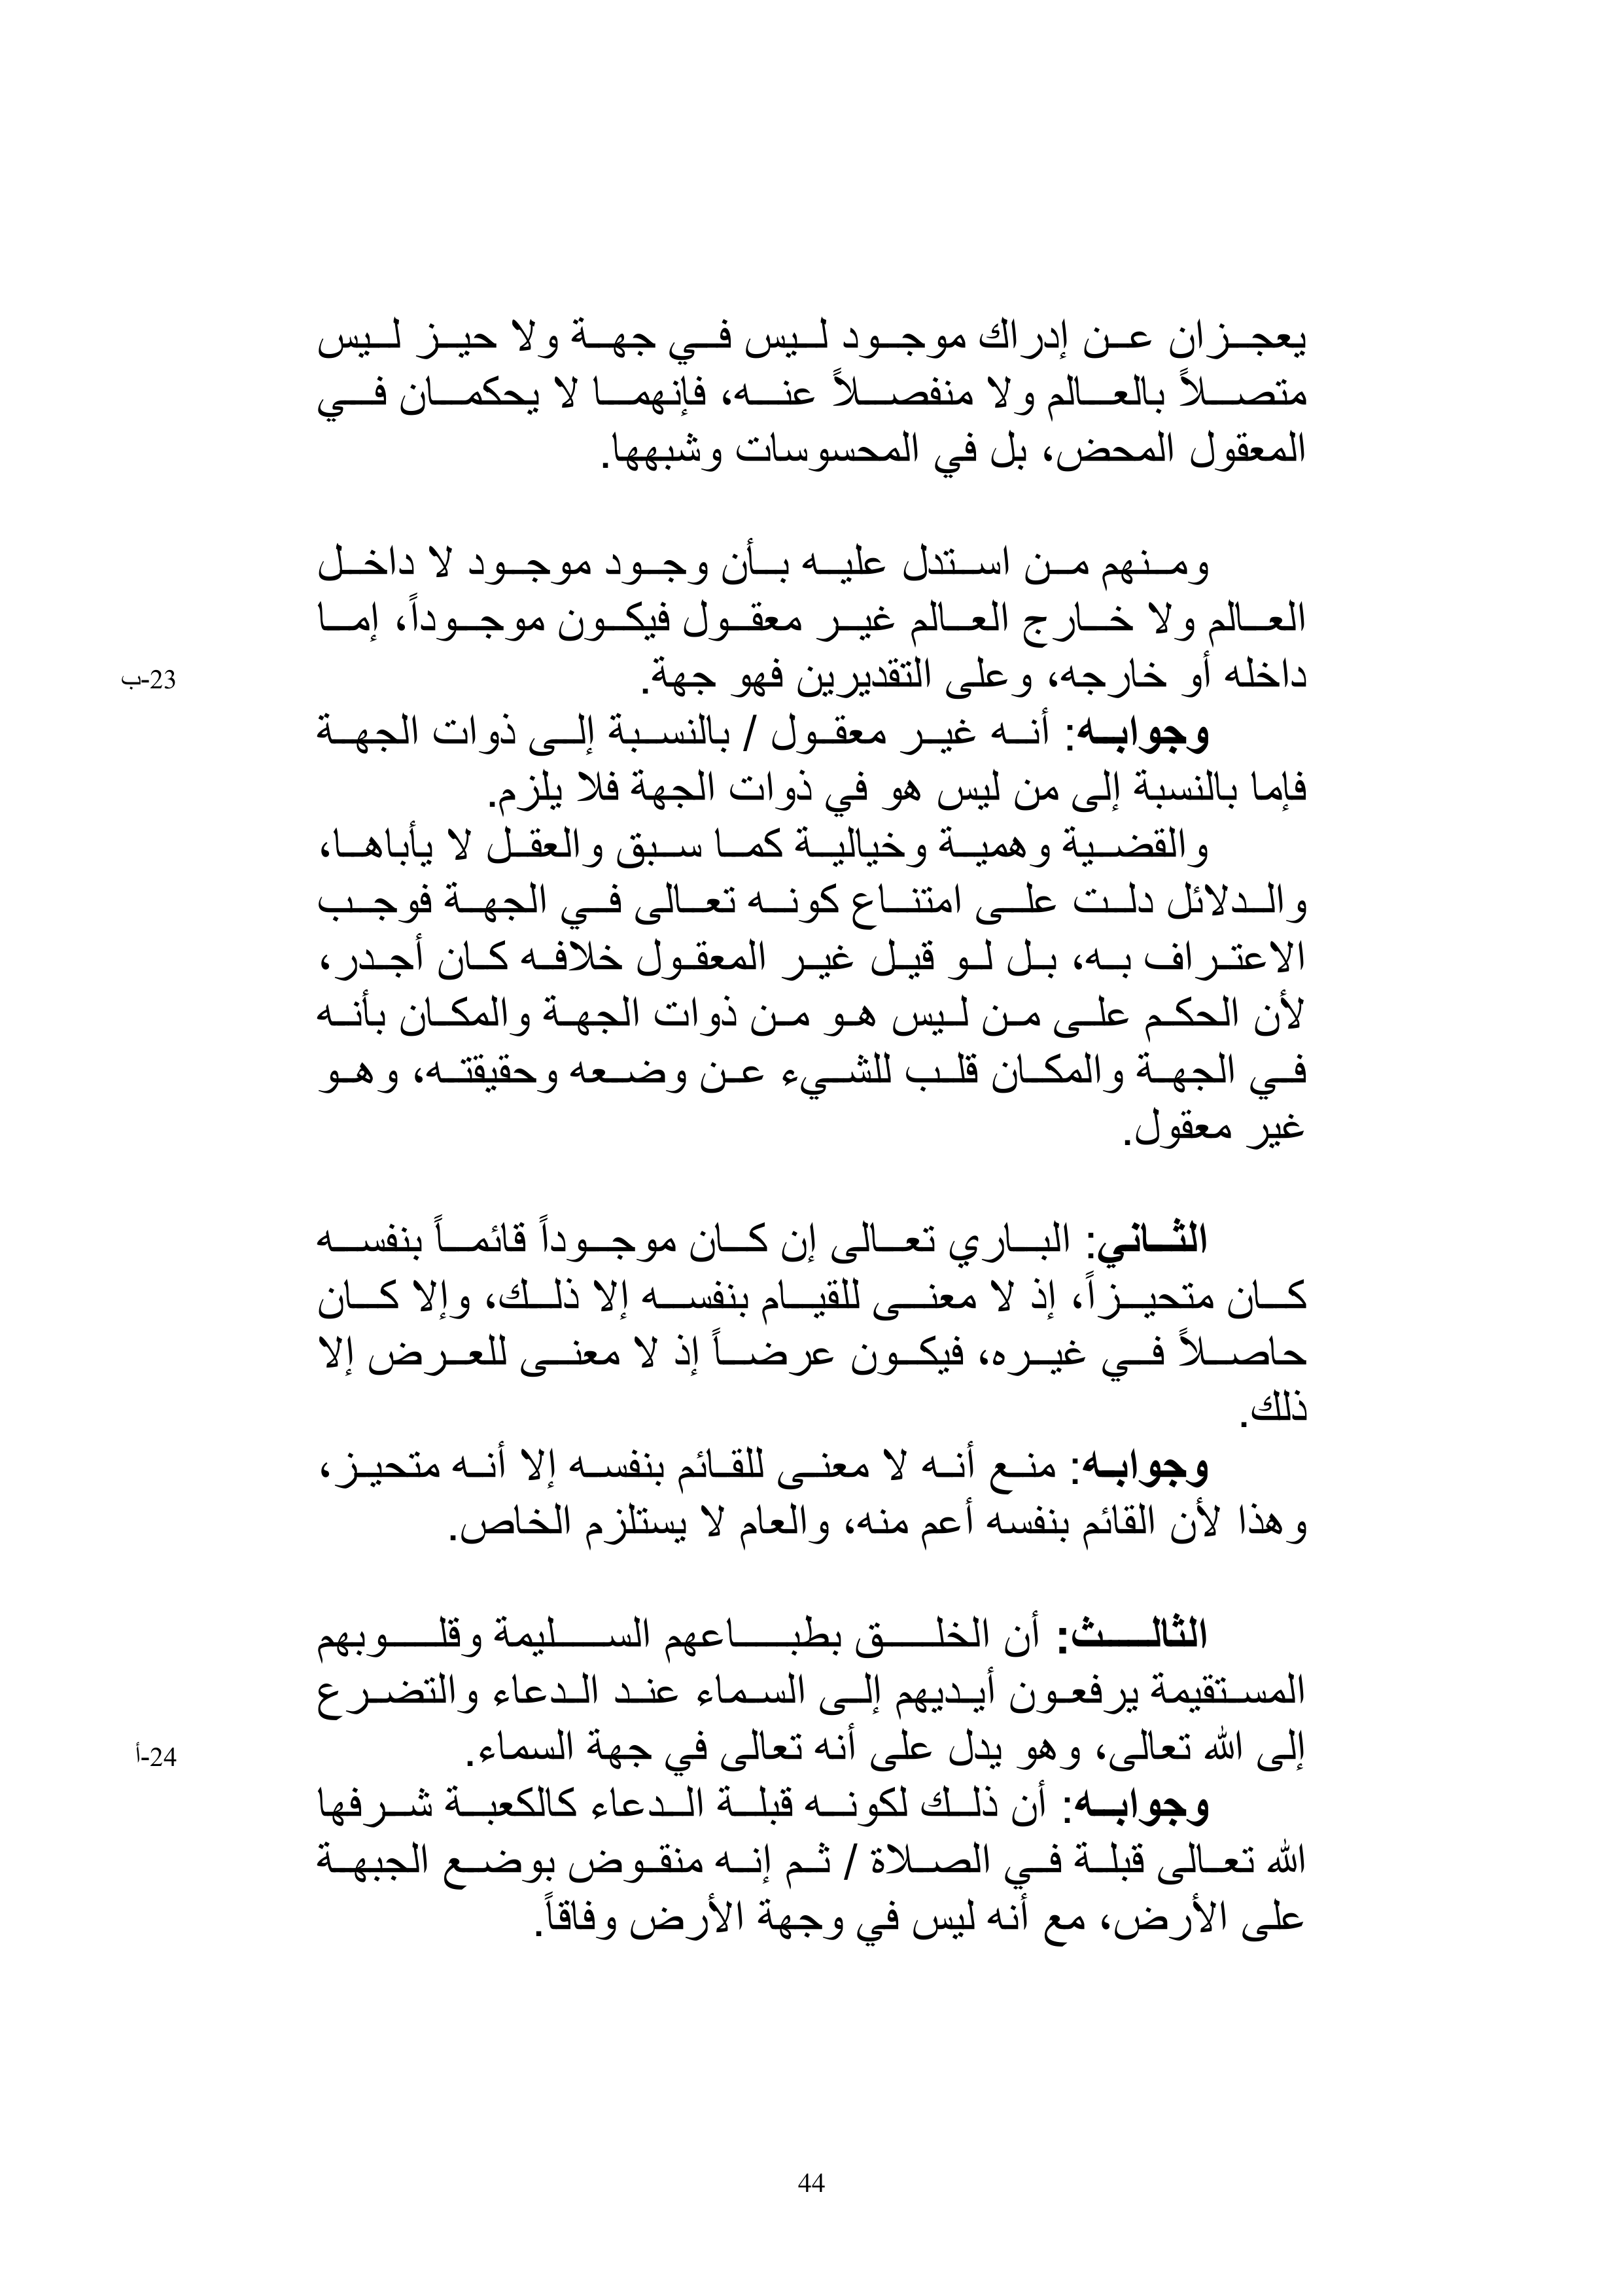 يعجزان عن إدراك موجود ليس في جهة ولا حيز ليس
متصلاً بالعالم ولا منفصلاً عنه، فإنهما لا يحكمان في
المعقول المحض، بل في المحسوسات وشبهها.
ومنهم من استدل عليه بأن وجود موجود لا داخل
العالم ولا خارج العالم غير معقول فيكون موجوداً، إما
داخله أو خارجه، وعلى التقديرين فهو جهة.
23-ب
وجوابه: أنه غير معقول / بالنسبة إلى ذوات الجهة
فإما بالنسبة إلى من ليس هو في ذوات الجهة فلا يلزم.
والقضية وهمية وخيالية كما سبق والعقل لا يأباها،
والدلائل دلت على امتناع كونه تعالى في الجهة فوجب
الاعتراف به، بل لو قيل غير المعقول خلافه كان أجدر،
لأن الحكم على من ليس هو من ذوات الجهة والمكان بأنه
في الجهة والمكان قلب للشيء عن وضعه وحقيقته، وهو
غير معقول.
الثاني: الباري تعالى إن كان موجوداً قائماً بنفسه
كان متحيزاً، إذ لا معنى للقيام بنفسه إلا ذلك، وإلا كان
حاصلاً في غيره، فيكون عرضاً إذ لا معنى للعرض إلا
ذلك.
وجوابه: منع أنه لا معنى للقائم بنفسه إلا أنه متحيز،
وهذا لأن القائم بنفسه أعم منه، والعام لا يستلزم الخاص.
الثالث: أن الخلق بطباعهم السليمة وقلوبهم
المستقيمة يرفعون أيديهم إلى السماء عند الدعاء والتضرع
إلى الله تعالى، وهو يدل على أنه تعالى في جهة السماء.
24-أ
وجوابه: أن ذلك لكونه قبلة الدعاء كالكعبة شرفها
الله تعالى قبلة في الصلاة / ثم إنه منقوض بوضع الجبهة
على الأرض، مع أنه ليس في وجهة الأرض وفاقاً.
44